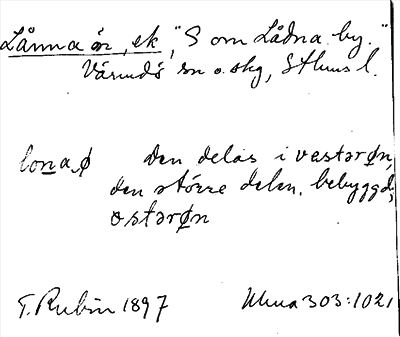 Lånna ön, ek, "S om Lådna by."
Värmdö sn o. skg, Sthms l.
lona,ø den delas i vestərøn,
den större delen, bebyggd,
ostərøn
T. Rubin 1897 Ulma 303:1021